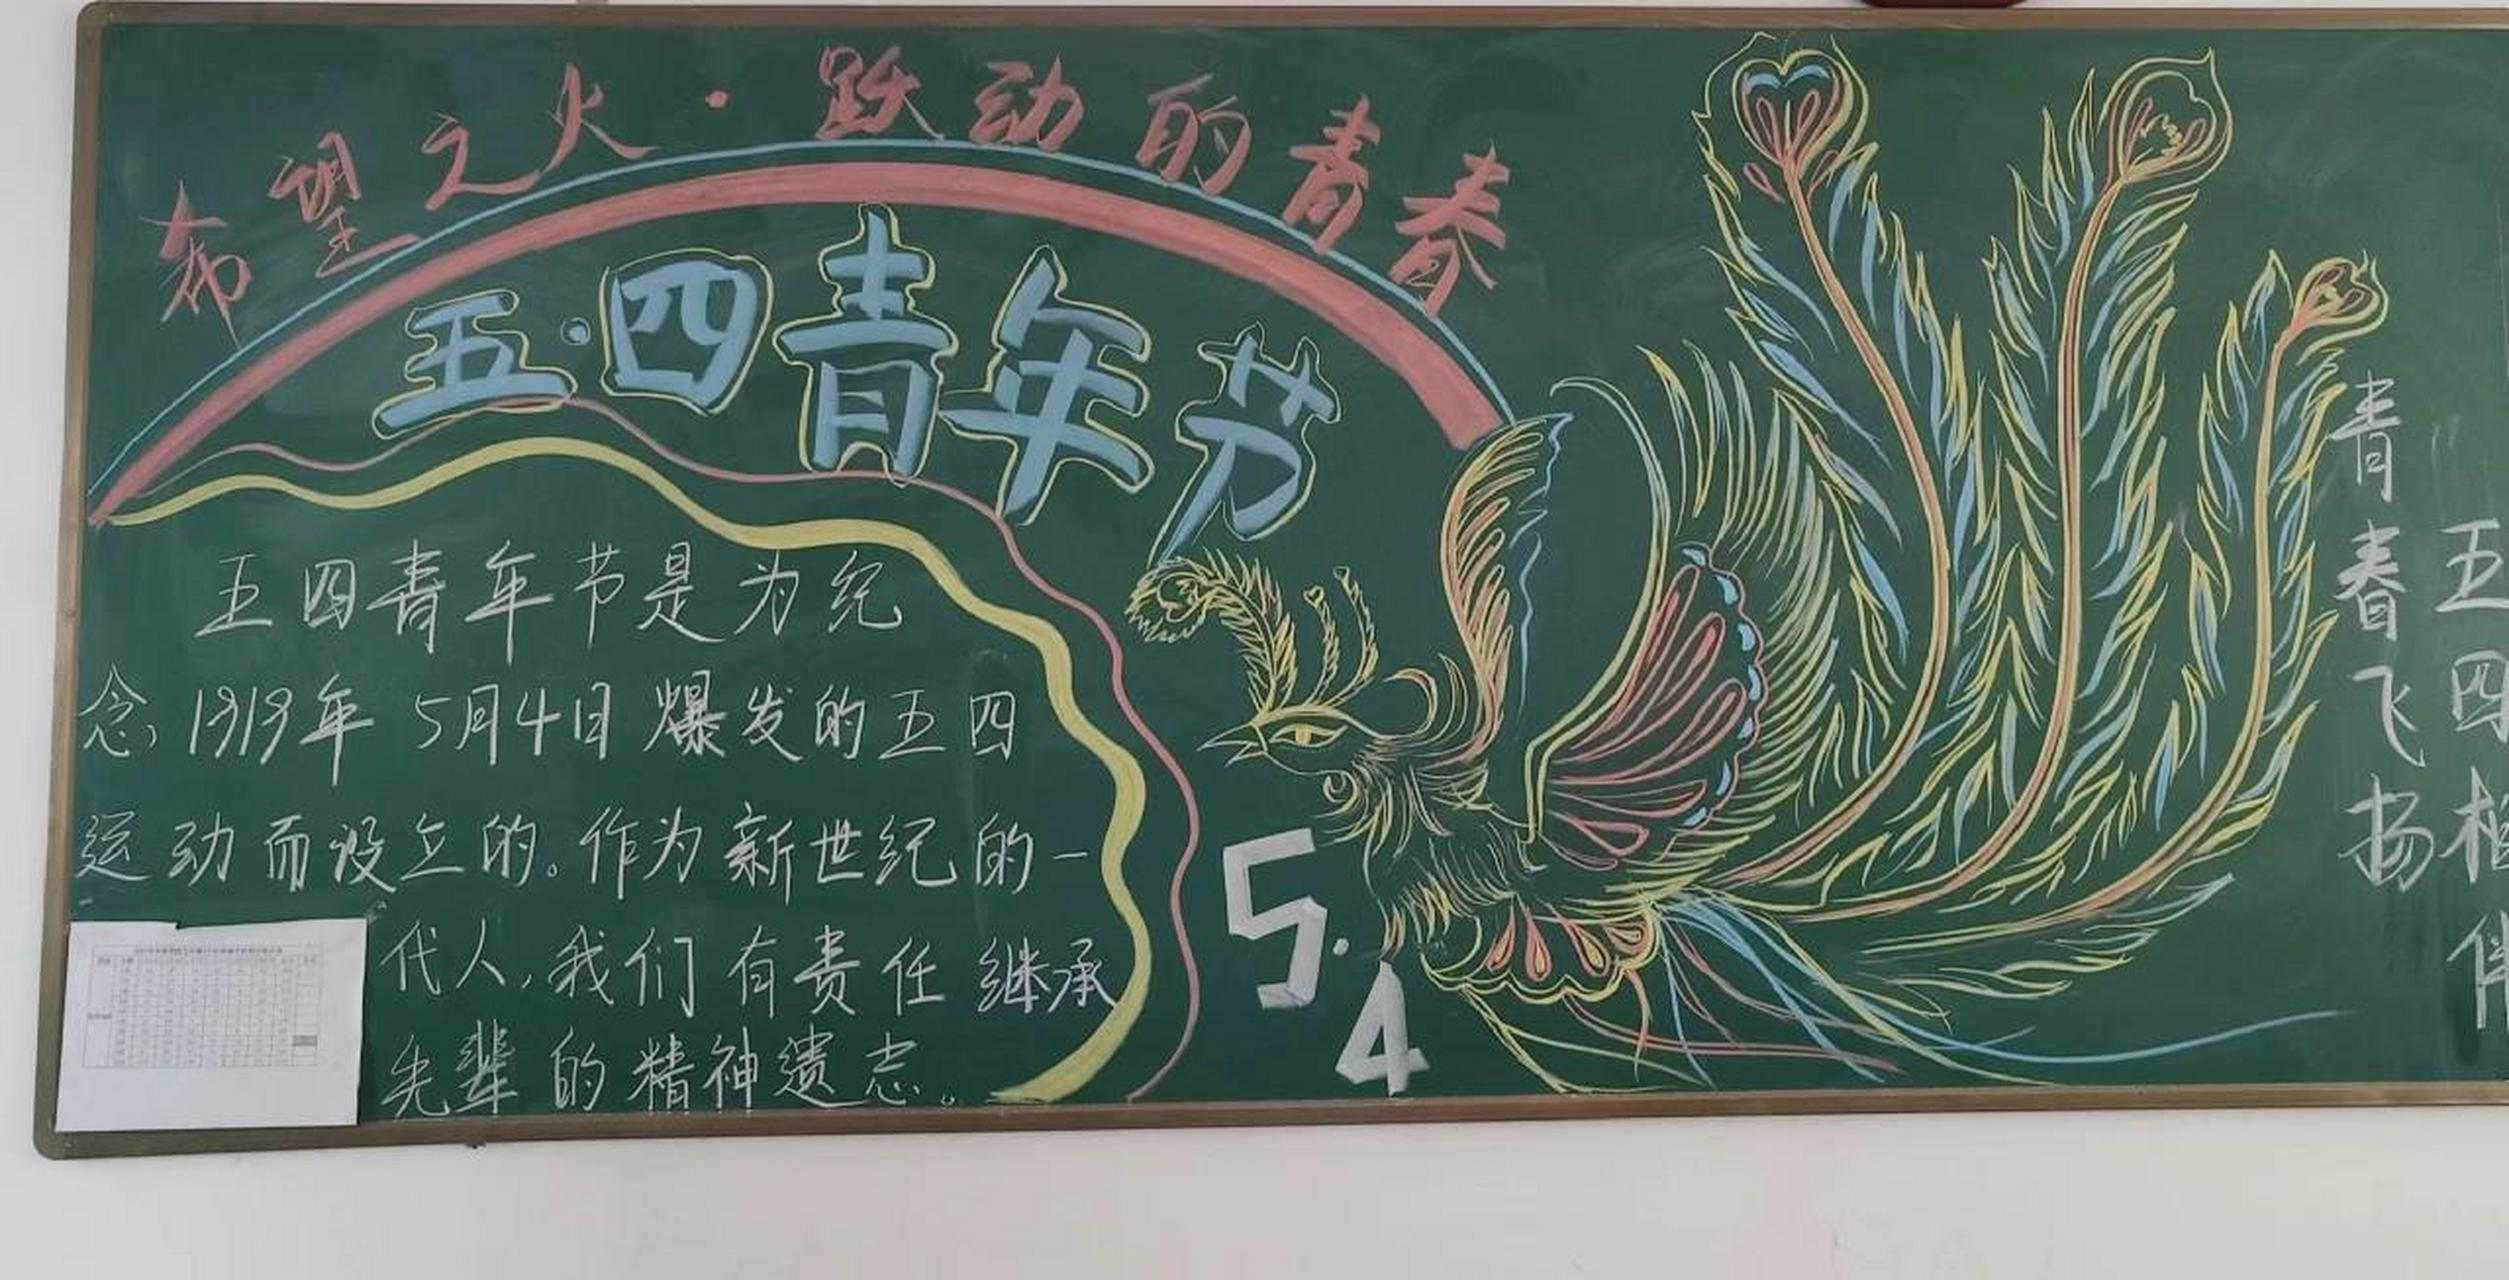 希望之火·跃动的青春
五·四青年节
五四青年节是为纪
念,1919年 5月4日爆发的五四
运动而设立的。作为新世纪的一
代人,我们有责任继承
先辈的精神遗志。
5.4
青春飞扬
五四相伴